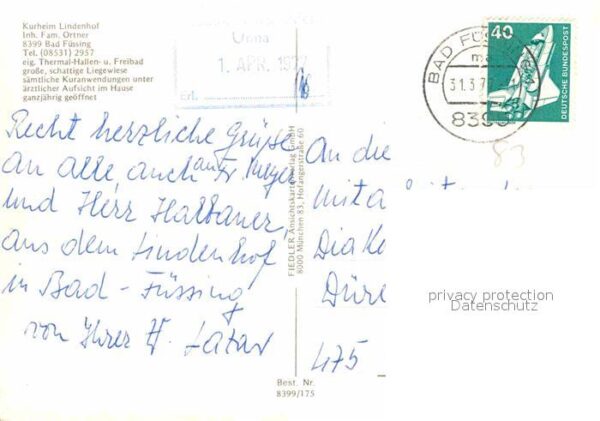 Kurheim Lindenhof
Inh. Fam. Ortner
8399 Bad Füssing
Tel. (08531) 2957
eig. Thermal-Hallen- u. Freibad
große, schattige Liegewiese
sämtliche Kuranwendungen unter
ärztlicher Aufsicht im Hause
ganzjährig geöffnet
Unna
1. APR. 197
Erl.
BAD FÜS
31.3.7
839
40
DEUTSCHE BUNDESPOST
83
Recht herzliche Grüße
an alle auch an Fr. Meyer
und Herr Haltaner,
aus dem Lindenhof
in Bad-Füssing
von Ihrer H. Latar
FIEDLER Ansichtskartenverlag GmbH
8000 München 83, Hofangerstraße 60
An die
Mita
Diake
Düre
475
privacy protection
Datenschutz
Best. Nr.
8399/175